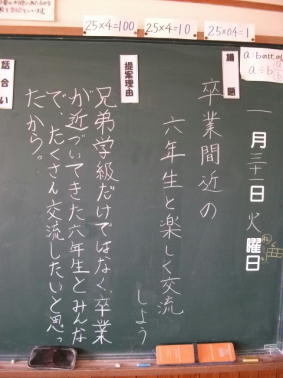 25×4=100
25×4=10
25×04=1
一月三十一日火曜日
議題
卒業間近の
六年生と楽しく交流
しよう
提案理由
兄弟学級だけではなく、卒業
が近づいてきた六年生とみんな
で、たくさん交流したいと思っ
たから。
話合い